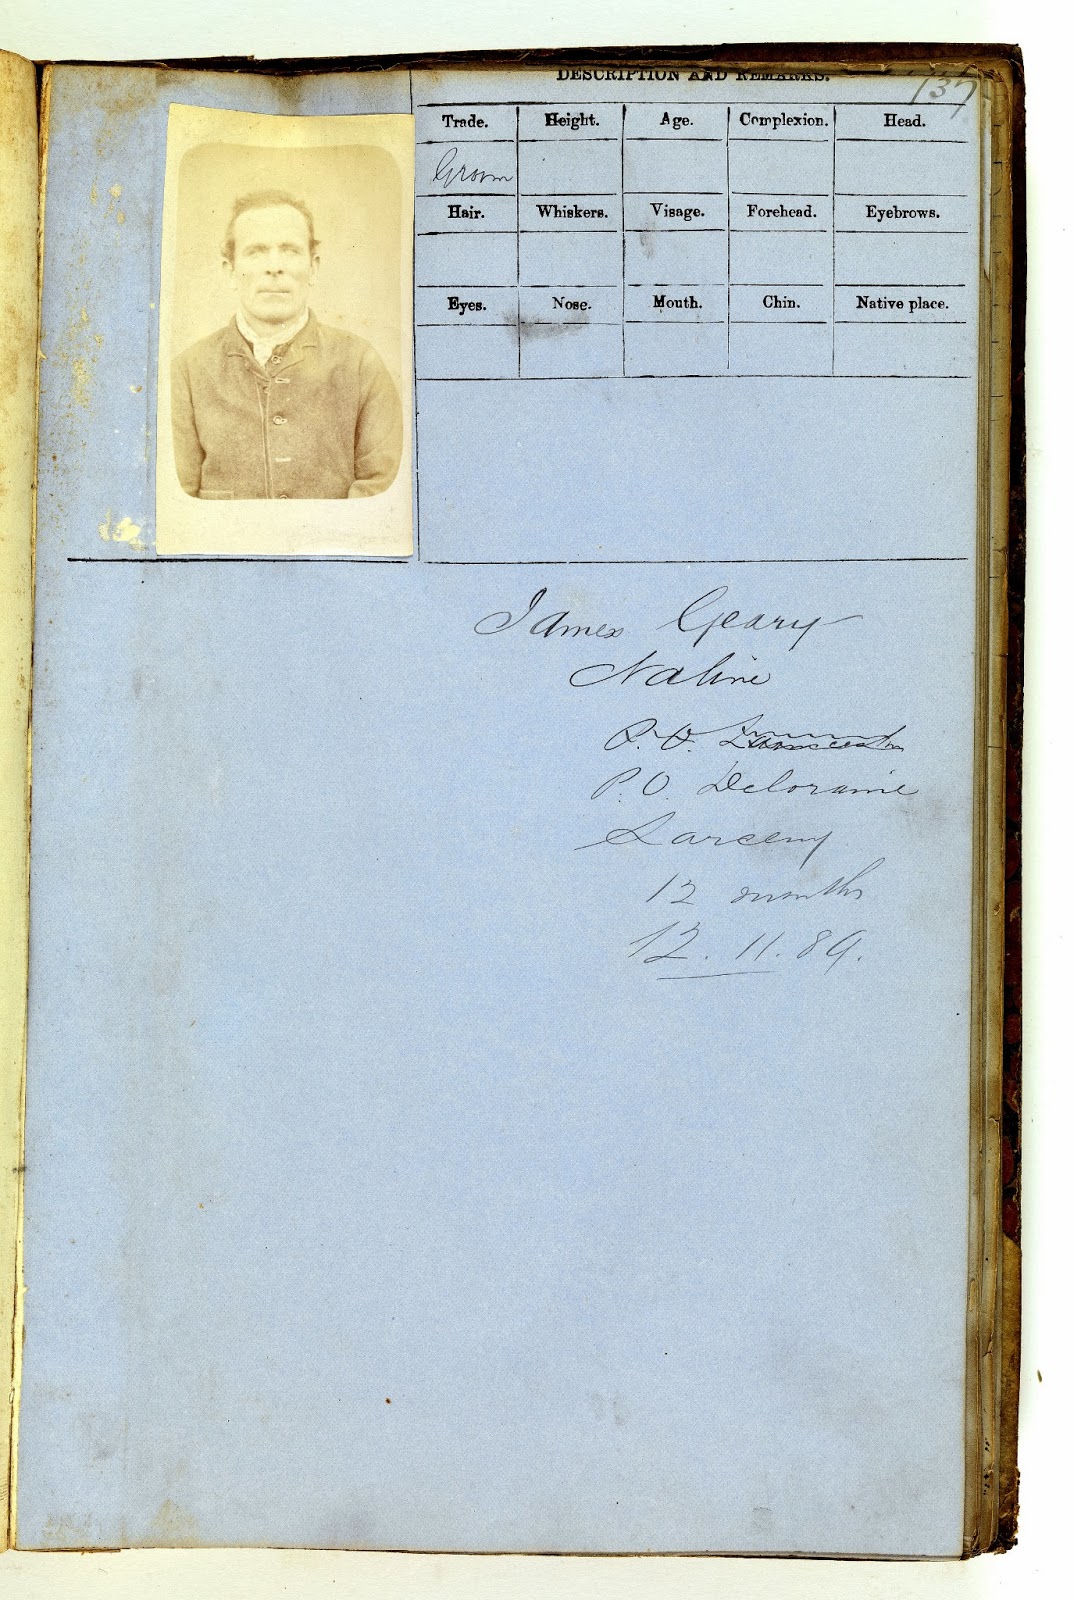 DESCRIPTION AND REMARKS.
137
Trade. Height. Age. Complexion. Head.
Groom
Hair. Whiskers. Visage. Forehead. Eyebrows.
Eyes. Nose. Mouth. Chin. Native place.
James Geary
Native
P. O.
P. O. Deloraine
Larceny
12 months
12. 11. 89.